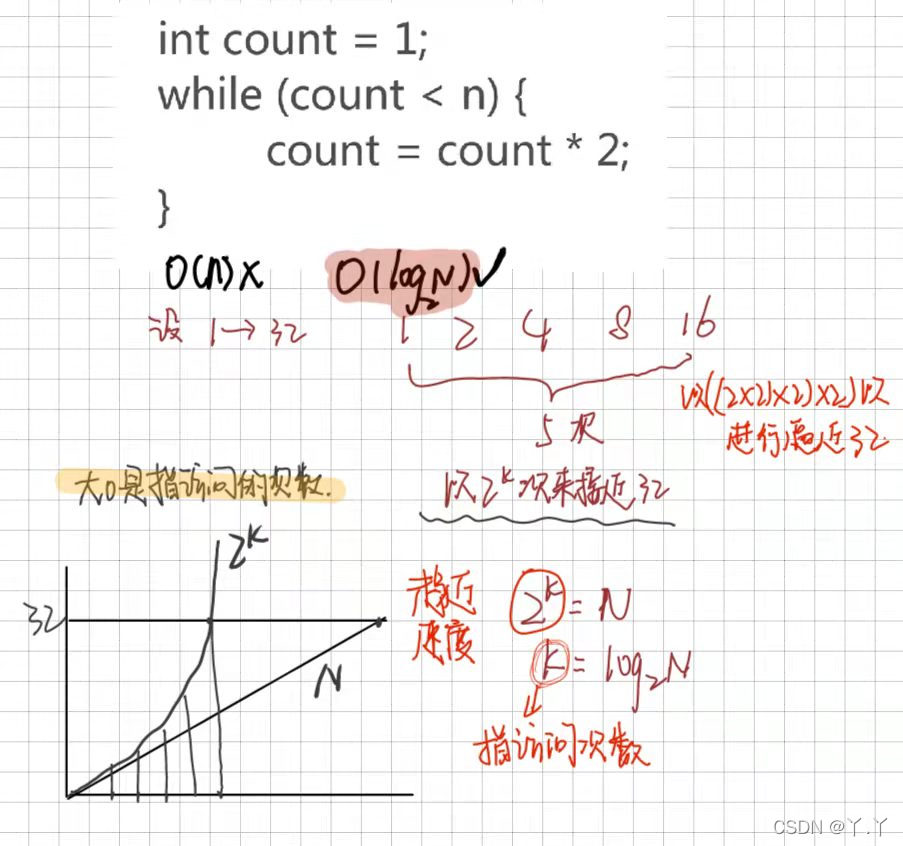 int count = 1;
while (count < n) {
count = count * 2;
}
O(n)× O(log₂N)✓
设 1→32 1 2 4 8 16
5次
以((2×2)×2)×2)以
进行逼近32
大O是指访问的次数.
以2ᴷ次来接近32
2ᴷ
32
N
接近
速度
2ᴷ = N
K = log₂N
指访问次数
CSDN @丫.丫